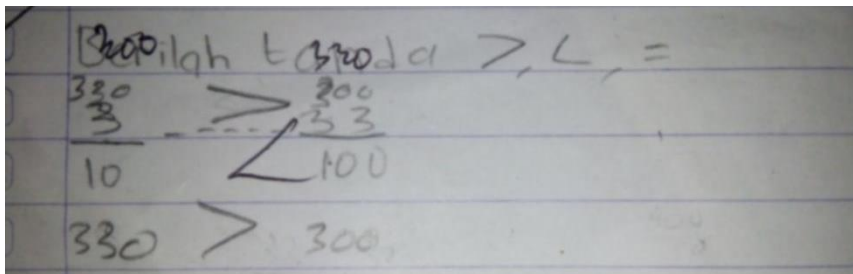 Berilah tanda >, <, =
330 > 300
3 ------ 33
10 < 100
330 > 300